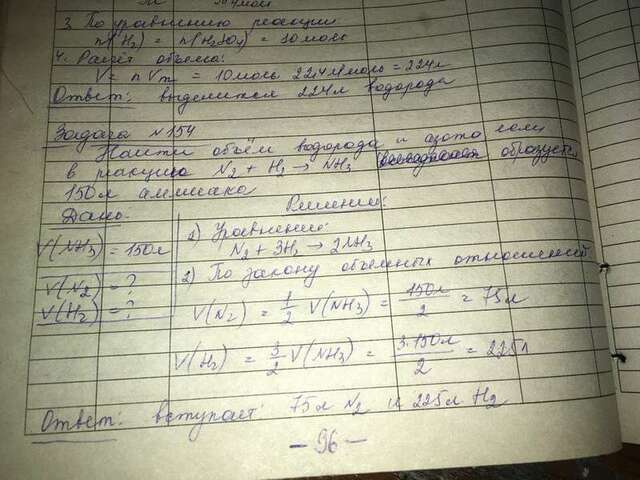 3. По уравнению реакции
n(H₂) = n(H₂SO₄) = 10 моль
4. Расчёт объема:
V = n Vm = 10 моль 22,4 л/моль = 224 л
Ответ: выделится 224 л водорода
Задача №154
Найти объём водорода и азота если
в реакцию N₂ + H₂ → NH₃ образуется
150 л аммиака
Дано: Решение:
V(NH₃) = 150 л
V(N₂) = ?
V(H₂) = ?
1) Уравнение:
N₂ + 3H₂ → 2NH₃
2) По закону объемных отношений
V(N₂) = 1/2 V(NH₃) = 150л/2 = 75 л
V(H₂) = 3/2 V(NH₃) = 3·150л/2 = 225 л
Ответ: вступает 75 л N₂ и 225 л H₂
- 96 -